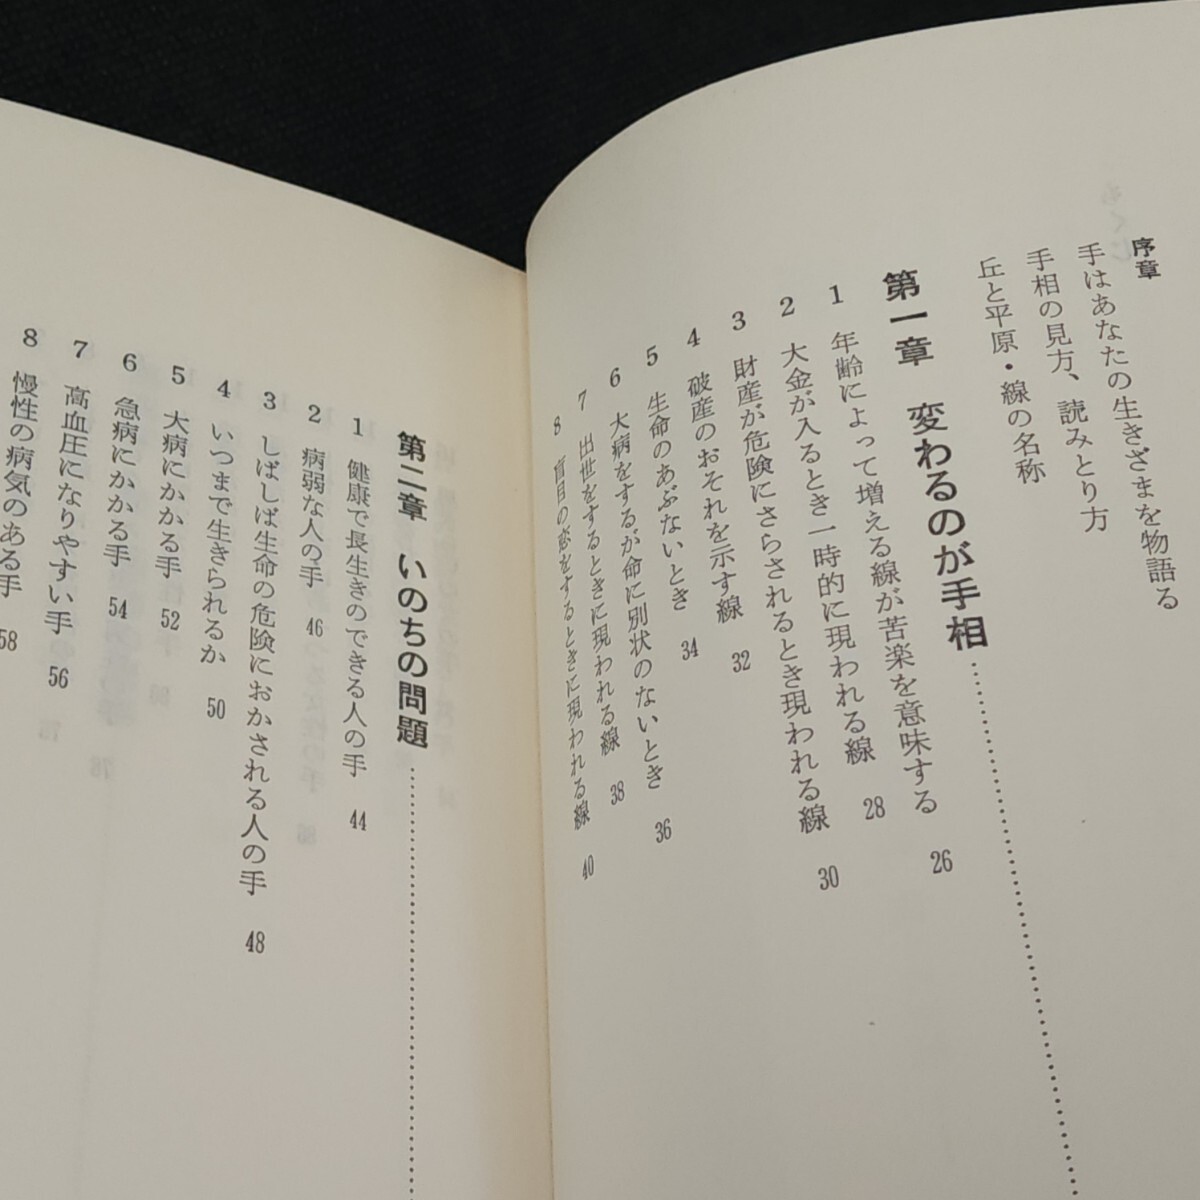 もくじ
序章
手はあなたの生きざまを物語る
手相の見方、読みとり方
丘と平原・線の名称
第一章 変わるのが手相
1 年齢によって増える線が苦楽を意味する 26
2 大金が入るとき一時的に現われる線 28
3 財産が危険にさらされるとき現われる線 30
4 破産のおそれを示す線 32
5 生命のあぶないとき 34
6 大病をするが命に別状のないとき 36
7 出世をするときに現われる線 38
8 盲目の恋をするときに現われる線 40
第二章 いのちの問題
1 健康で長生きのできる人の手 44
2 病弱な人の手 46
3 しばしば生命の危険におかされる人の手 48
4 いつまで生きられるか 50
5 大病にかかる手 52
6 急病にかかる手 54
7 高血圧になりやすい手 56
8 慢性の病気のある手 58